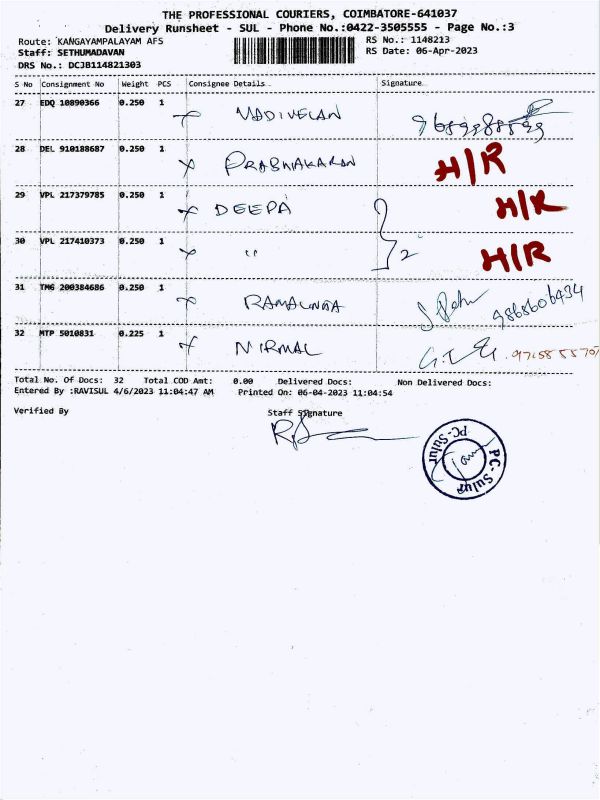 THE PROFESSIONAL COURIERS, COIMBATORE-641037
Delivery Runsheet - SUL - Phone No.:0422-3505555 - Page No.:3
Route: KANGAYAMPALAYAM AFS
RS No.: 1148213
Staff: SETHUMADAVAN
RS Date: 06-Apr-2023
DRS No.: DCJB114821303
S No Consignment No Weight PCS Consignee Details Signature
27 EDQ 10890366 0.250 1 VADIVELAN
28 DEL 910188687 0.250 1 PRABHAKARAN H/R
29 VPL 217379785 0.250 1 DEEPA H/R
30 VPL 217410373 0.250 1 " 2 H/R
31 TMG 200384686 0.250 1 9868606434
32 MTP 5010831 0.225 1 NIRMAL
Total No. Of Docs: 32 Total COD Amt: 0.00 Delivered Docs: Non Delivered Docs:
Entered By :RAVISUL 4/6/2023 11:04:47 AM Printed On: 06-04-2023 11:04:54
Verified By Staff Signature
PC-Sulur
PC-Sulur